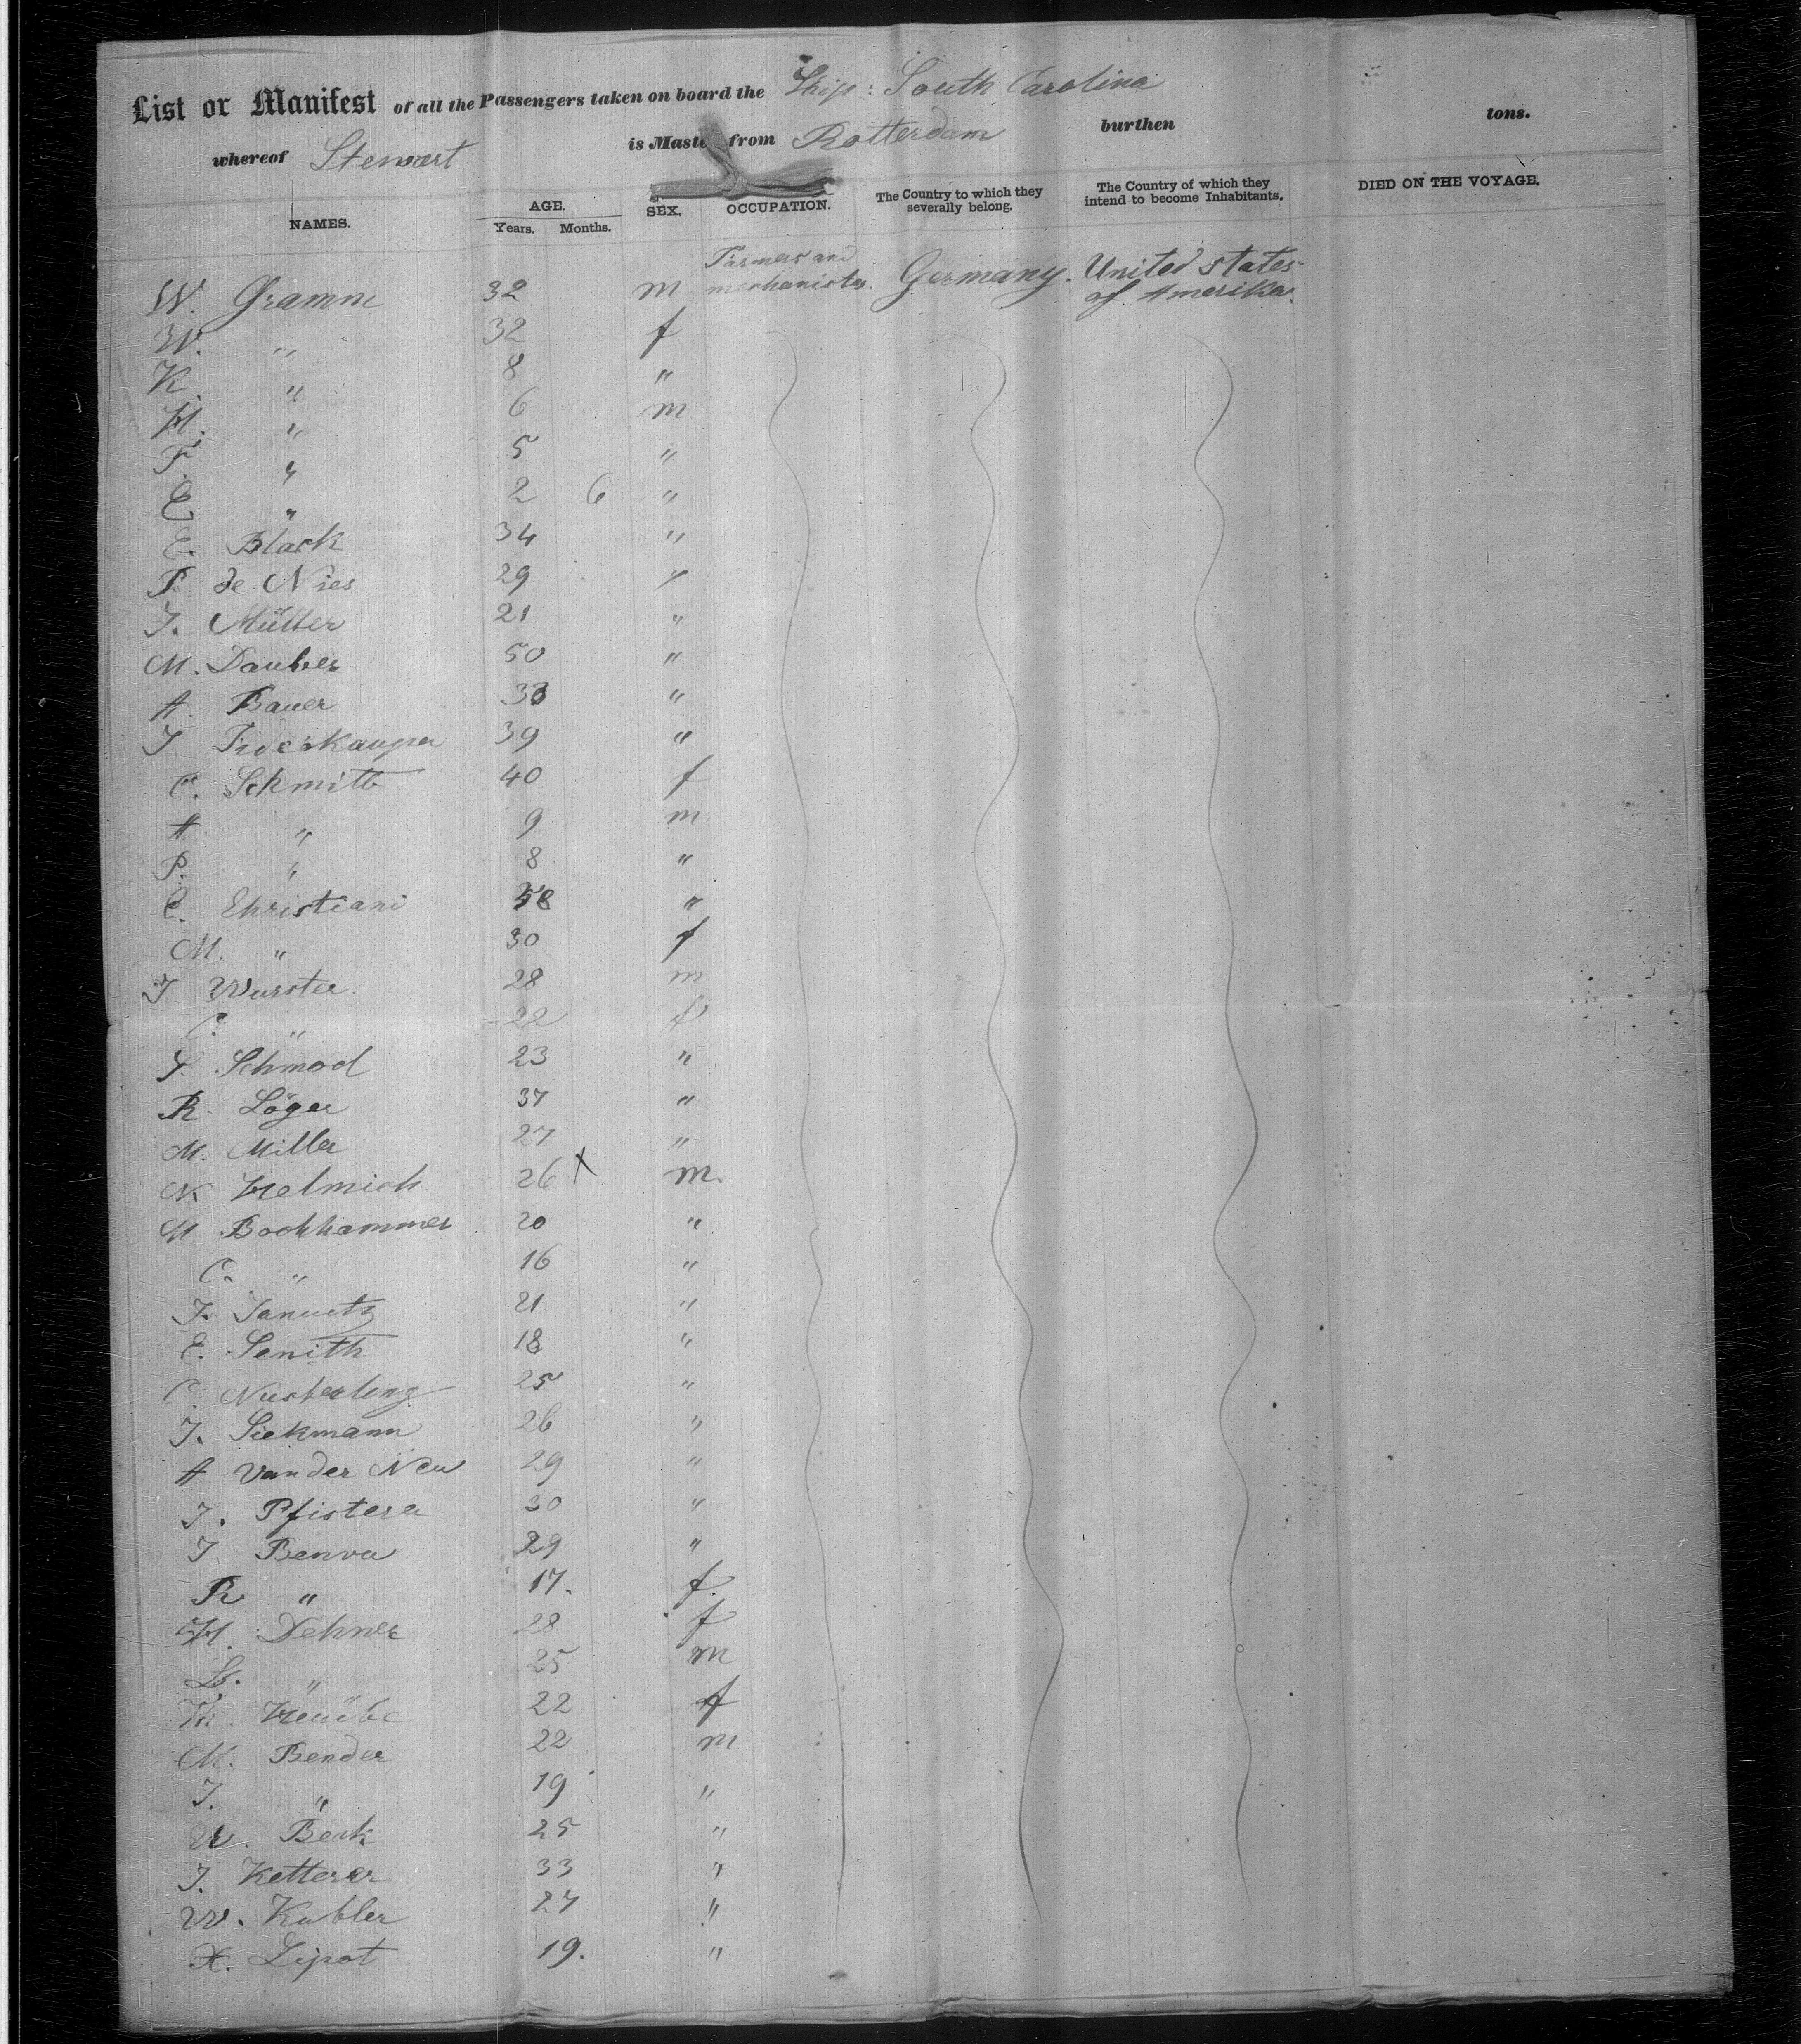 List or Manifest of all the Passengers taken on board the Ship: South Carolina
whereof Stewart is Master from Rotterdam burthen tons.
NAMES. AGE. Years. Months. SEX. OCCUPATION. The Country to which they severally belong. The Country of which they intend to become Inhabitants. DIED ON THE VOYAGE.
W. Gramm 32 m Farmers and mechanistes. Germany. United states of Amerika.
W. " 32 f
K. " 8 "
H. " 6 m
F. " 5 "
E. " 2 6 "
E. Black 34 "
P. de Nies 29 "
J. Mütter 21 "
M. Dauber 50 "
A. Bauer "
J. 39 "
C. Schmitt 40 f
A. " 9 m
P. " 8 "
C. Christiani 58 "
M. " 30 f
J Wurster 28 m
C. " 22 f
S. Schmod 23 "
R. Löger 37 "
M. Miller 27 "
N Helmich 26 X m.
M Bochhammer 20 "
C. " 16 "
J. 21 "
E. Senith 18 "
C. Nusterling 25 "
J. Siekmann 26 "
A Van der Neu 29 "
J. Pfisterer 30 "
J Benva 29 "
R " 17. f.
H. Dehner 28 f
L. " 25 m
Th. 22 f
M. Bender 22 m
J. " 19 "
W. Beck 25 "
J. Ketterer 33 "
W. Kubler 27 "
X. Lipot 19. "